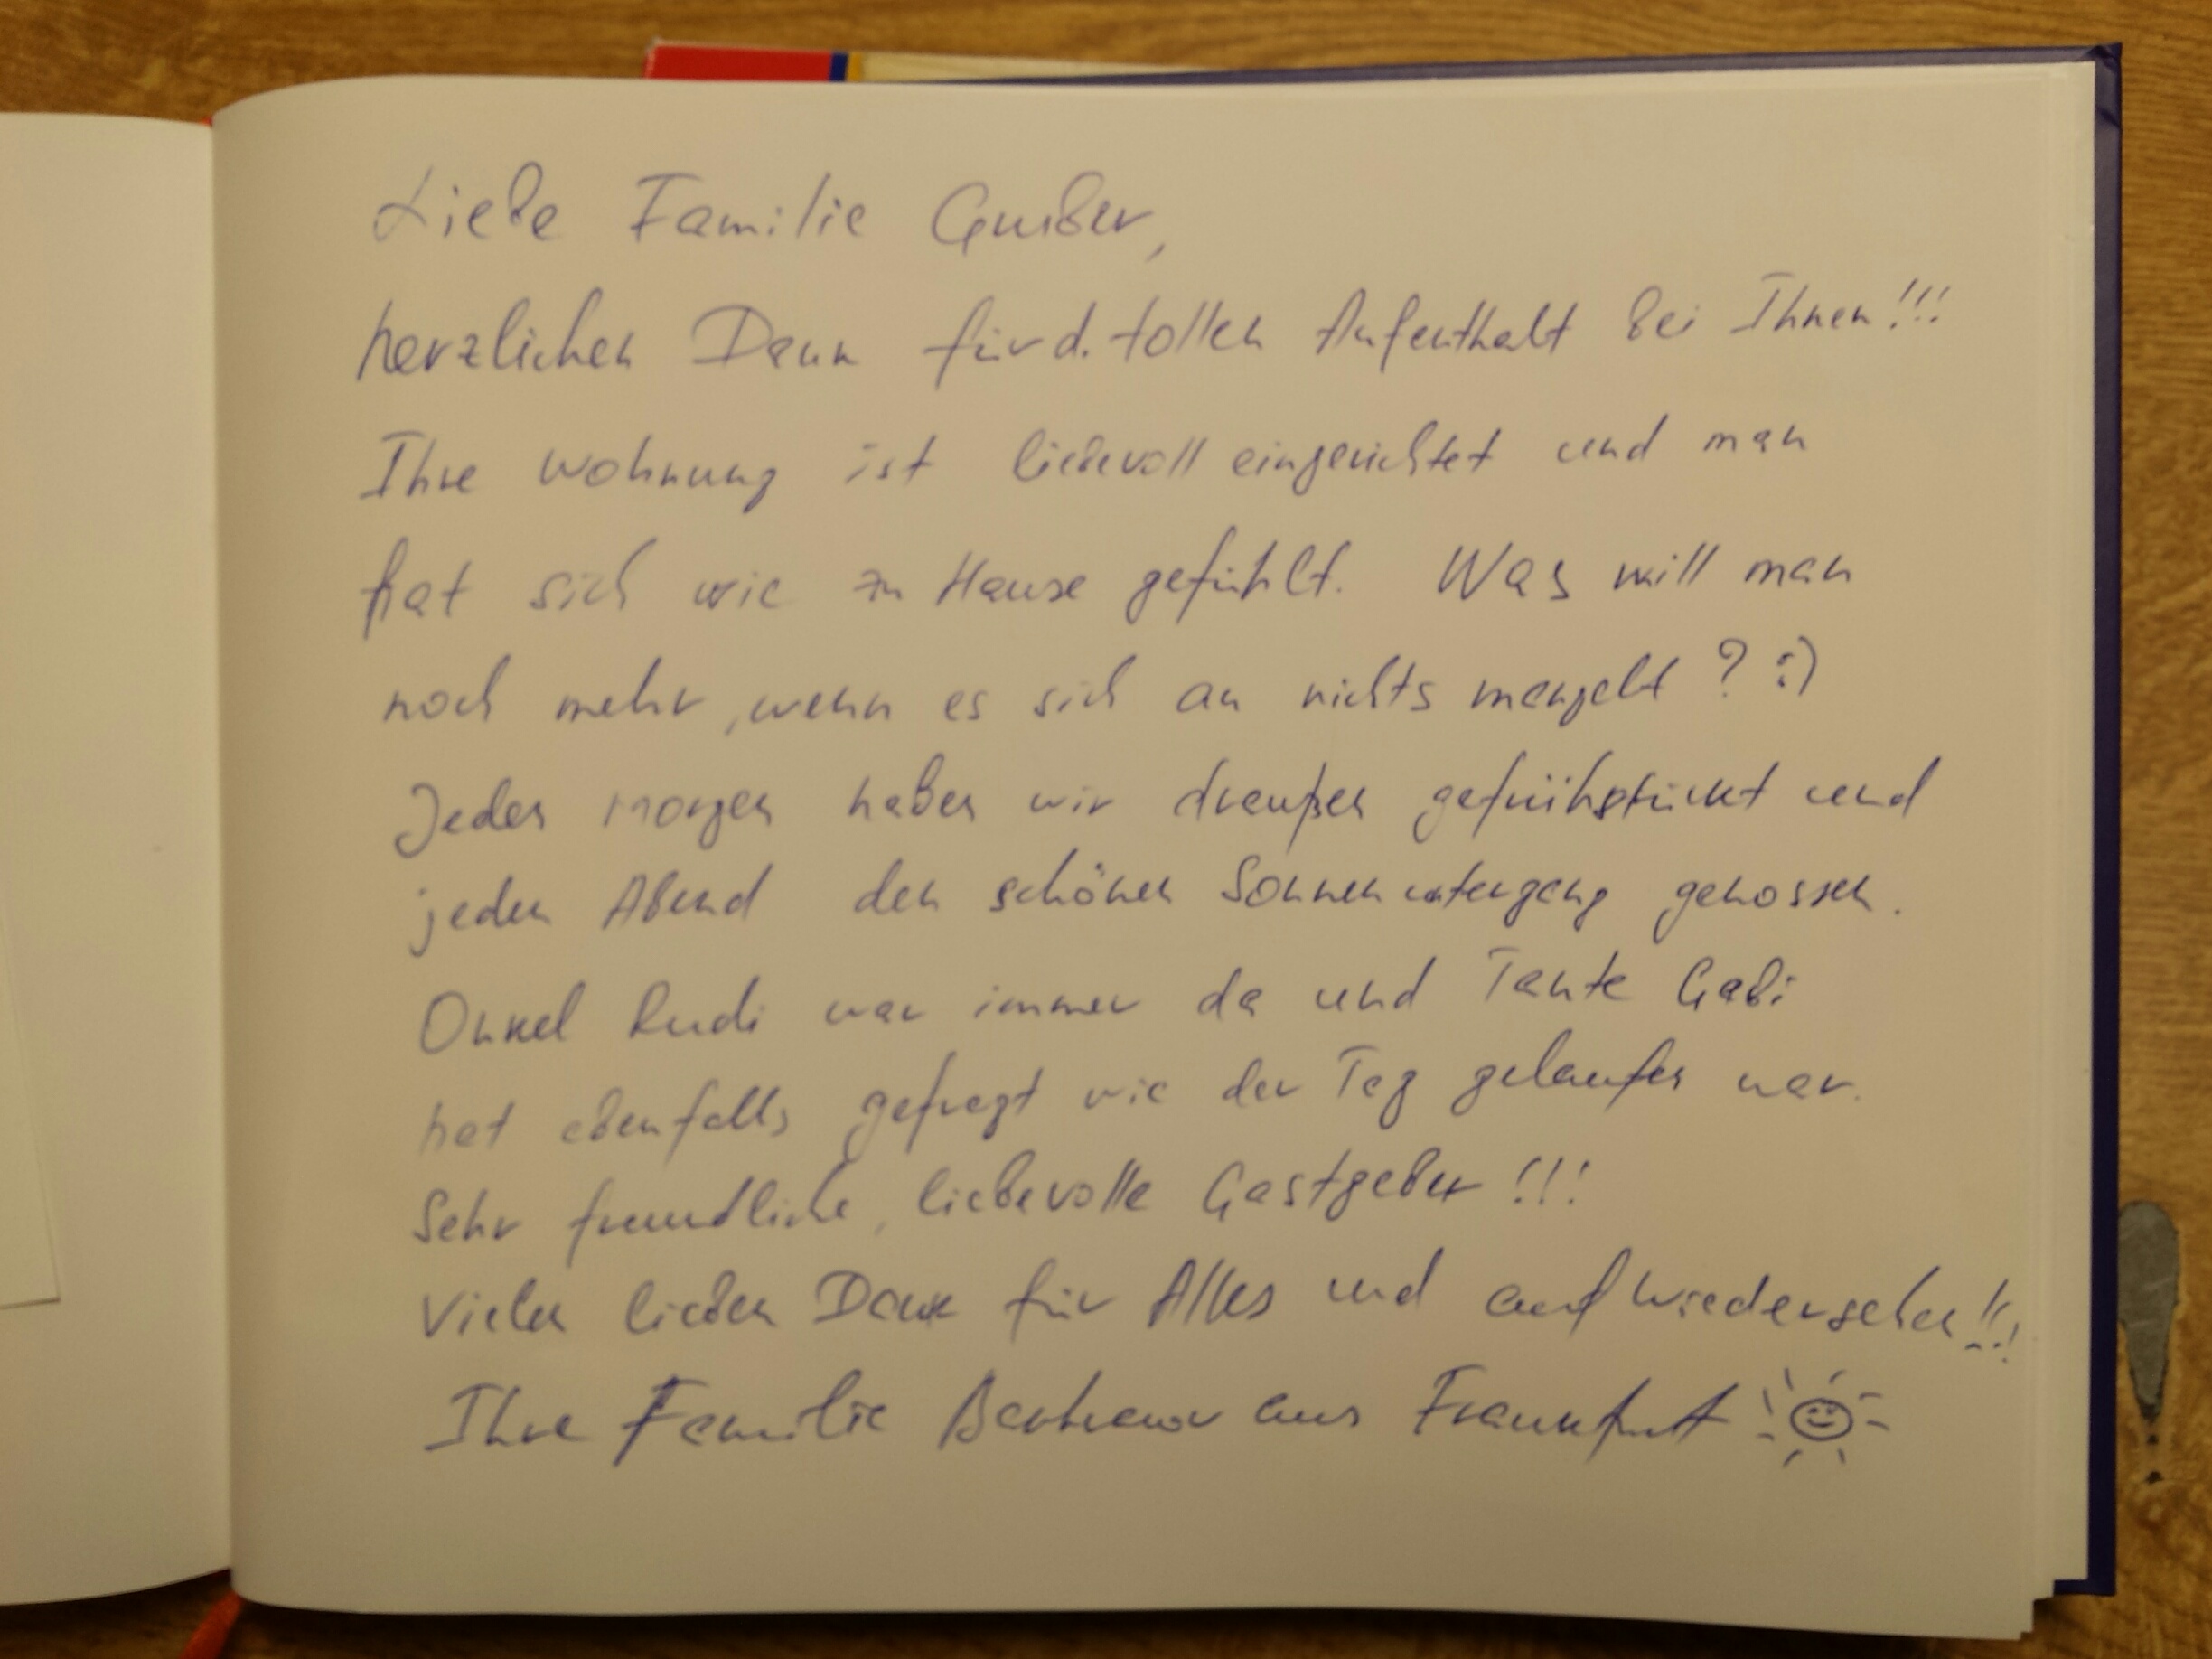 Liebe Familie
herzlichen Dank für d. tollen Aufenthalt bei Ihnen!!!
Ihre Wohnung ist liebevoll eingerichtet und man
hat sich wie zu Hause gefühlt. Was will man
noch mehr, wenn es sich an nichts mangelt? :)
Jeden Morgen haben wir draußen gefrühstückt und
jeden Abend den schönen Sonnenuntergang genossen.
Onkel Rudi war immer da und Tante Gabi
hat ebenfalls gefragt wie der Tag gelaufen war.
Sehr freundliche, liebevolle Gastgeber!!!
Vielen lieben Dank für Alles und auf Wiedersehen!!!
Ihre Familie aus Frankfurt